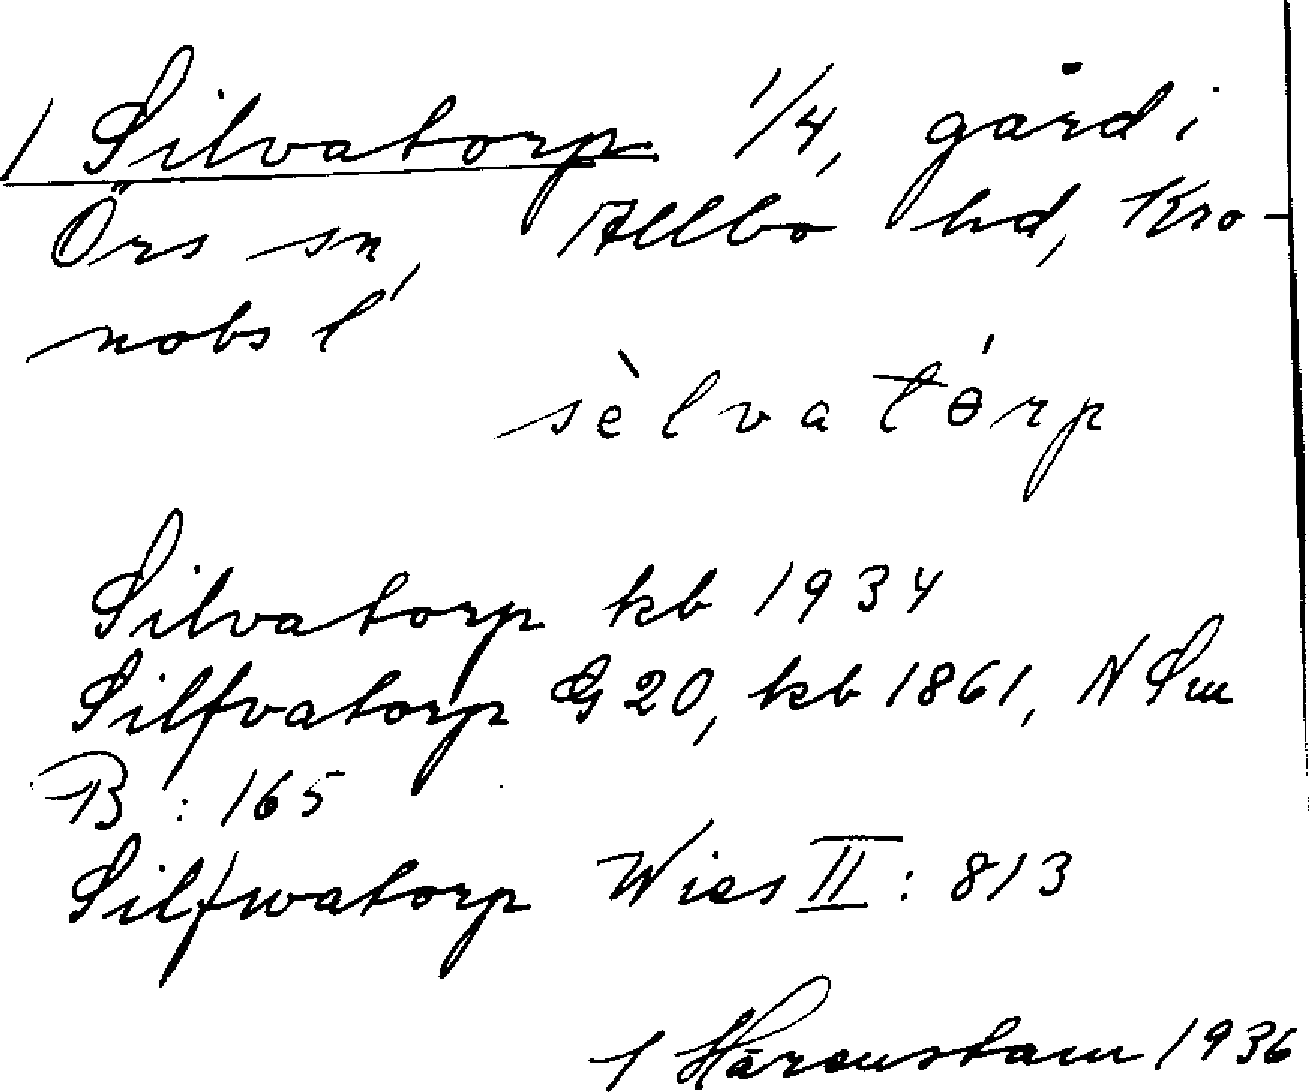 / Silvatorp 1/4, gård i
Örs sn, Allbo hd, Kro-
nobs l
sèlvatɵ́rp
Silvatorp kb 1934
Silfvatorp G 20, kb 1861, N Sm
B : 165
Silfwatorp Wies II : 813
1936